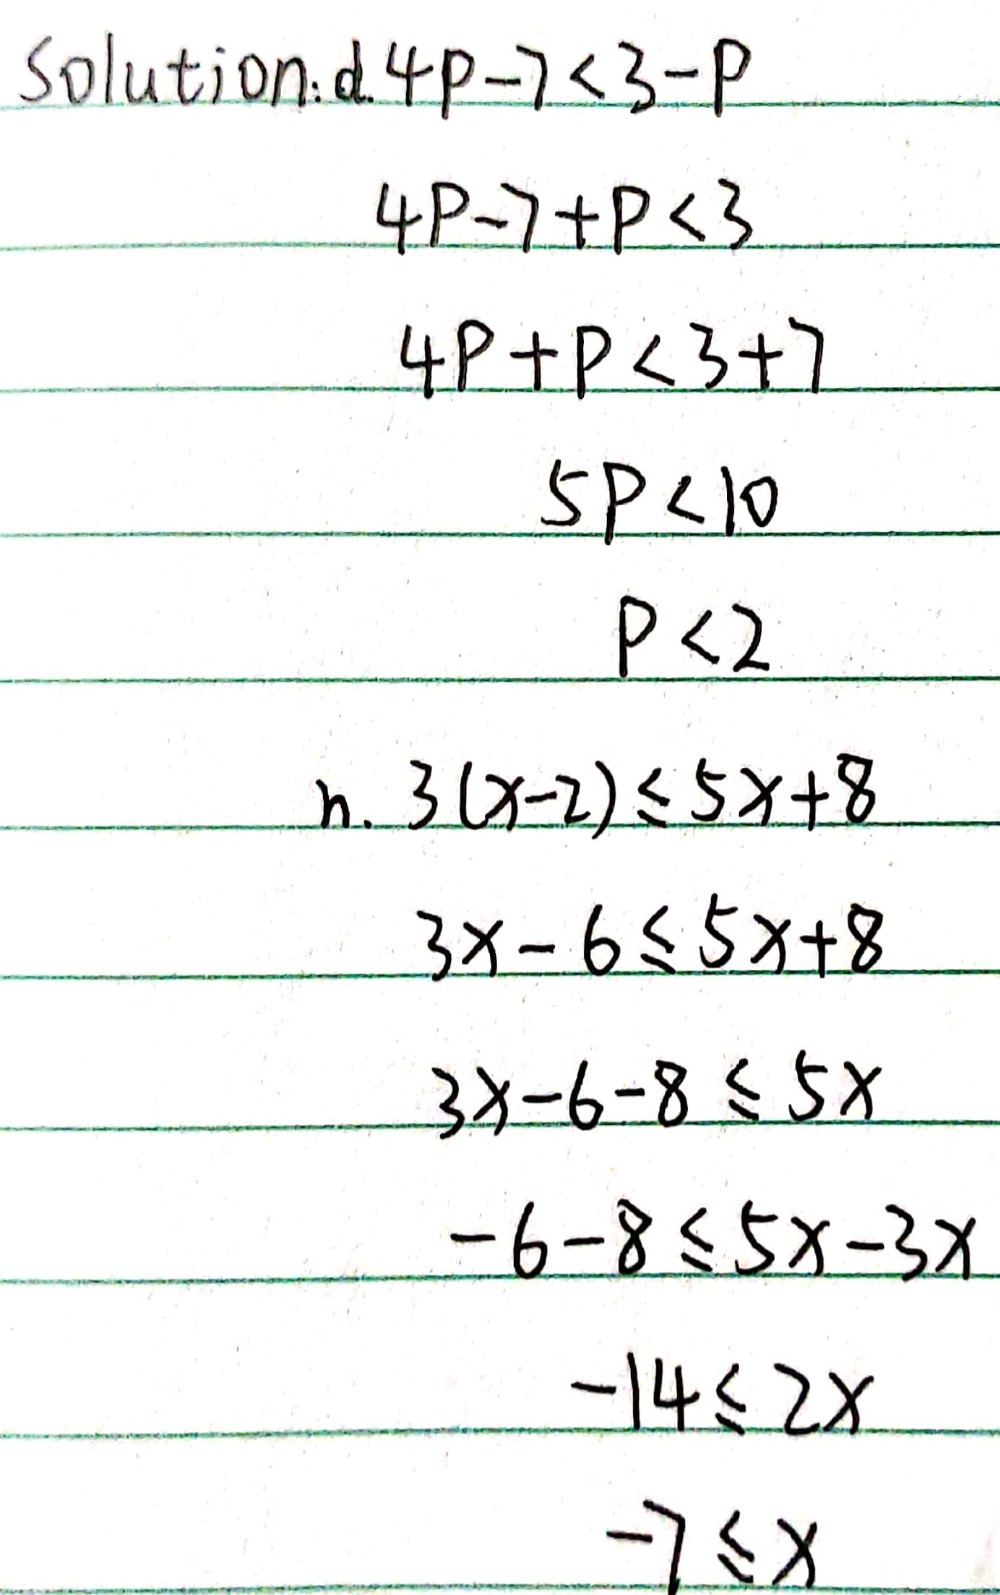 Solution: d. 4p-7<3-p
4p-7+p<3
4p+p<3+7
5p<10
p<2
h. 3(x-2)≤5x+8
3x-6≤5x+8
3x-6-8≤5x
-6-8≤5x-3x
-14≤2x
-7≤x